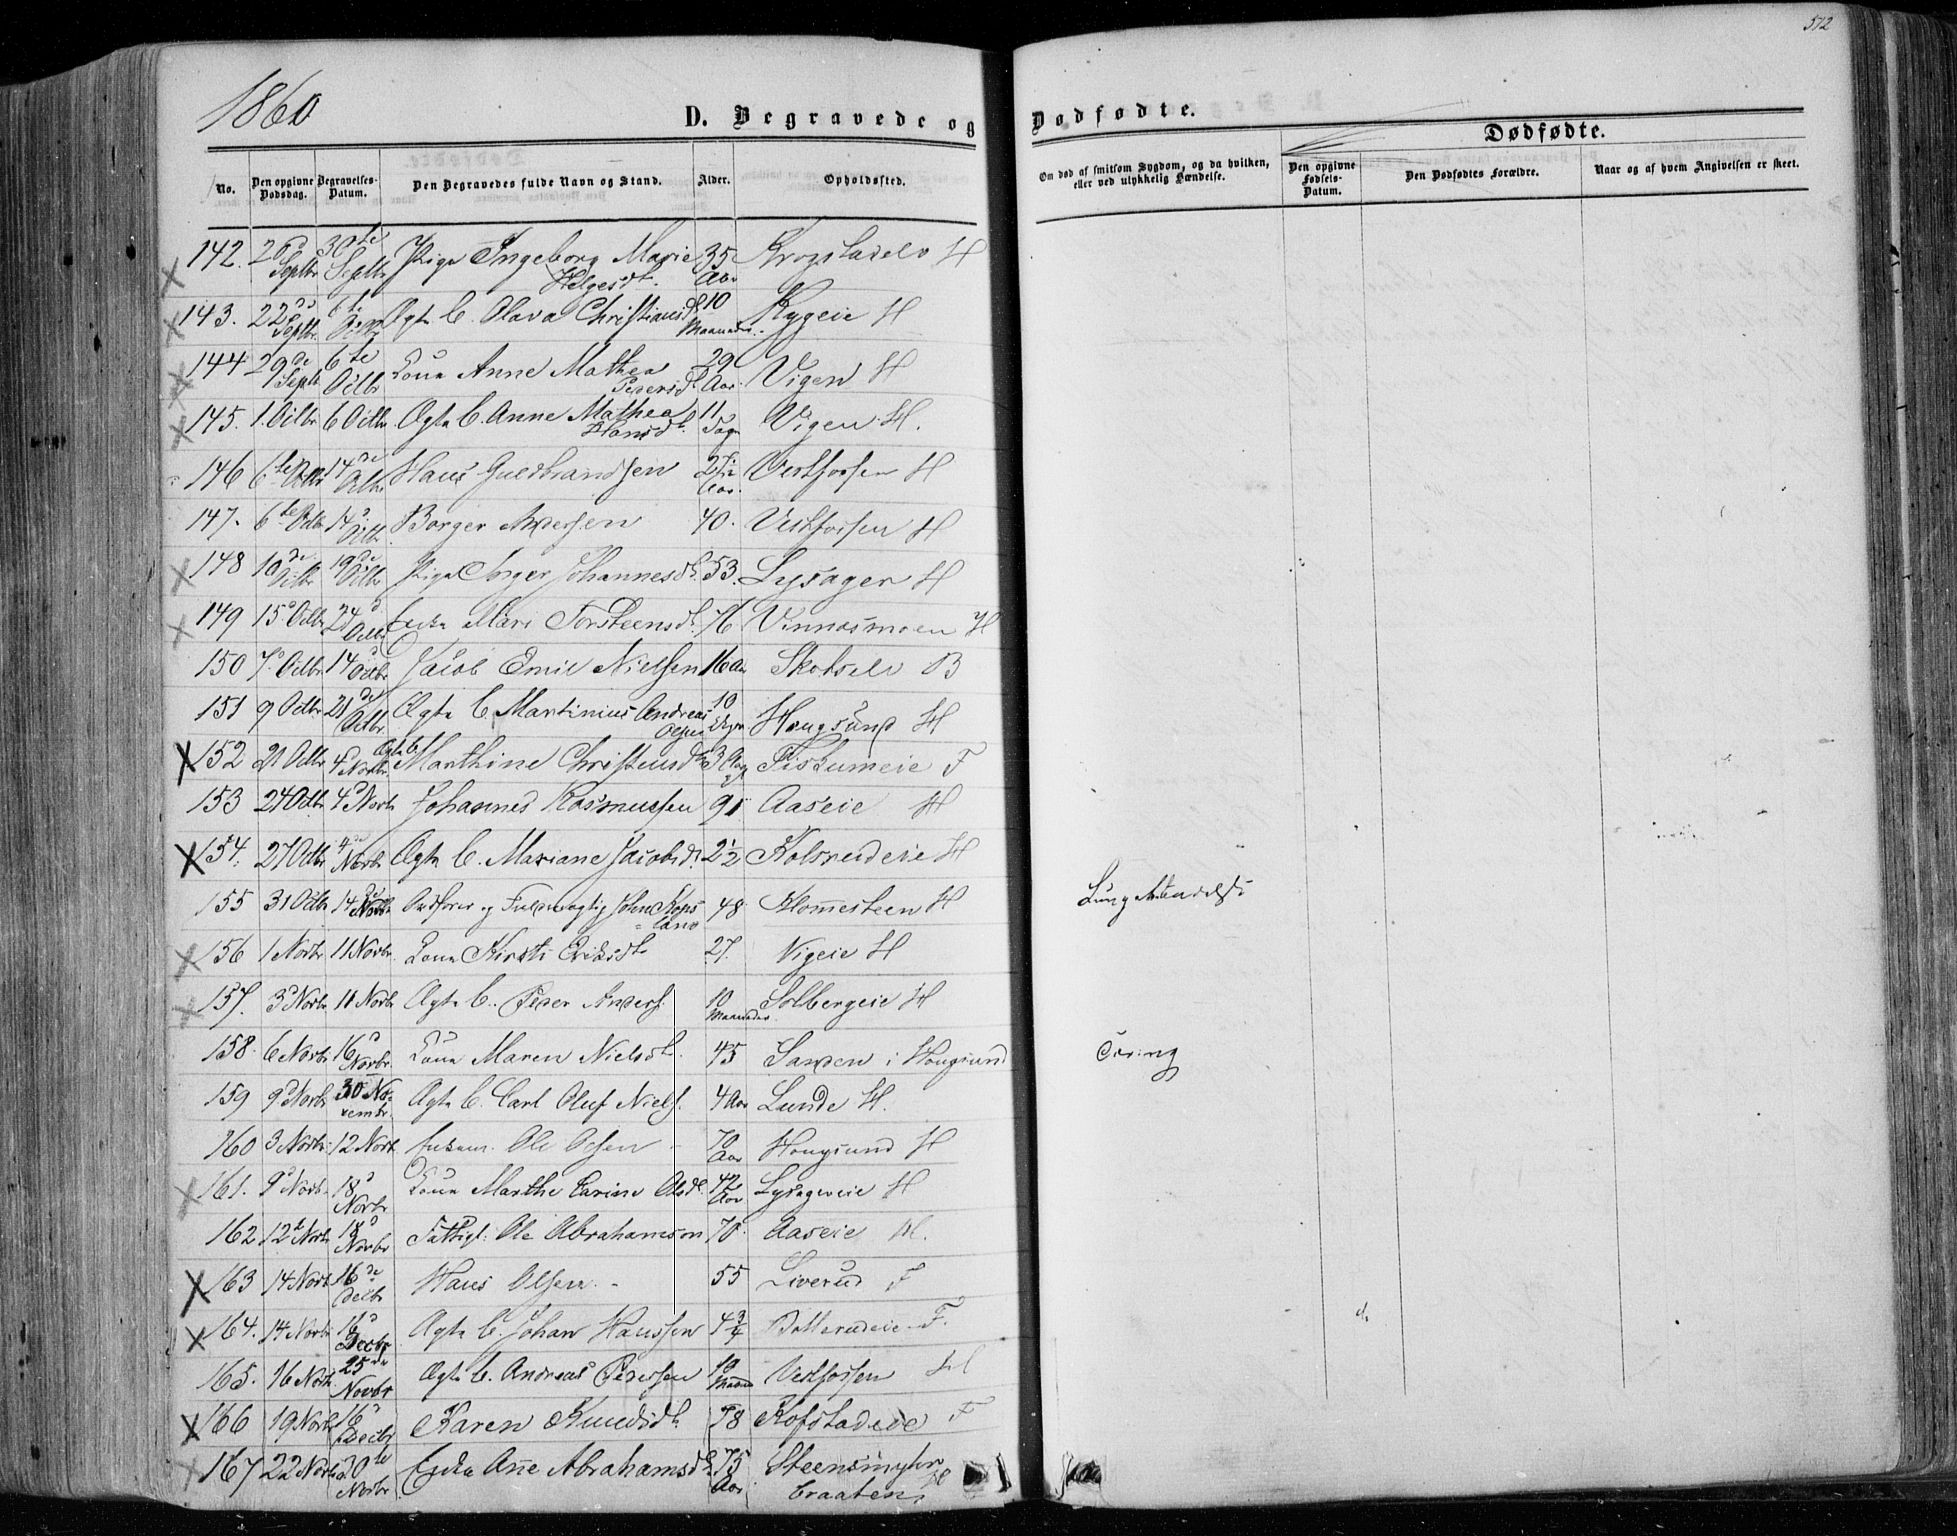 1860
D. Begravede og
Dødfødte.
572
No.
Den opgivne Dødsdag.
Begravelses-Datum.
Den Begravedes fulde Navn og Stand.
Alder.
Opholdssted.
Om død af smitsom Sygdom, og da hvilken, eller ved ulykkelig Hændelse.
Dødfødte.
Den opgivne Fødsels-Datum.
Den Dødfødtes Forældre.
Naar og af hvem Angivelsen er skeet.
142. 26 Septbr 30te Septbr Pige Ingeborg Marie Helgesdt. 35 Aar H
143. 22de Septbr. Ægte B. Olava Christiansdt 10 Maaneder. Rygeie H
144 29de Septb 6te Octbr Kone Anne Mathea Pedersdt 29 Aar. Vigen H
145. 1. Octbr 6 Octbr. Ægte B. Anne Mathea Hansdt. 11 Dage Vigen H.
146 6te Octbr 14de Octbr Hans Guldbrandsen Aar. Vestfossen H
147. 6te Octbr 14d Octbr Borger Andersen 40. Vestfossen H
148 10de Octbr 19de Octbr Pige Johannesdt. 53. Lysager H
149 15d Octbr 24d Octbr Enke Mari Torsteensdt. 76 Vinnæsmoen H
150 7d Octbr 14d Octbr Jacob Emil Nielsen 16 Aar Skotselv B
151 9 Octbr 21de Octbr Ægte B. Martinius Andreas Olsen 10 Uger Hougsund H
152 21 Octbr 4d Novbr. Ægte B. Marthine Christensdt 3 Fiskumeie F
153 24 Octbr 4d Novbr Johannes Rasmussen 91 Aaseie H
154. 27 Octbr 4de Novbr Ægte B. Mariane Jacobsdt. 2½ Kolsrudeie H
155 31 Octbr 14de Novbr og Fuldmægtig John Kopsland 48 Klommesteen H
156 1 Novbr 11 Novbr. Kone Kirsti Eriksdt 27. Vigeie H
157. 3d Novbr 11 Novbr Ægte B. Peder Anders. 10 Maaneder. Solbergeie H
158. 6 Novbr 16d Novbr. Kone Maren Nielsdt. 45 Sanden i Hougsund
159 9d Novbr 30 Novembr. Ægte B. Carl Oluf Niels. 4 Aar Lunde H.
160 3 Novbr 12 Novb. Enkem. Ole Olsen 70 Aar Hougsund H
161. 9d Novbr. 18d Novbr Kone Marthe Carine Olsdt. 42 Aar Lysagereie H
162 12t Novbr 18d Novbr Fattigl: Ole Abrahamson 70. Aaseie H.
163 14 Novb. 16de Decbr Hans Olsen. 55 Liverud F
164. 14 Novbr 16d Decbr Ægte B. Johan Hanssen 4¾ Botterudeie F.
165. 16 Novb. 25de Novbr Ægte B. Andreas Pedersen 10 Maaned Vestfossen H
166 19 Novbr 16d Decbr Karen Knudsdt. 78 Kofstadeie F
167 22 Novbr 30te Novbr. Enke Ane Abrahamsdt. 75 Aar Steensmyhrbraaten H